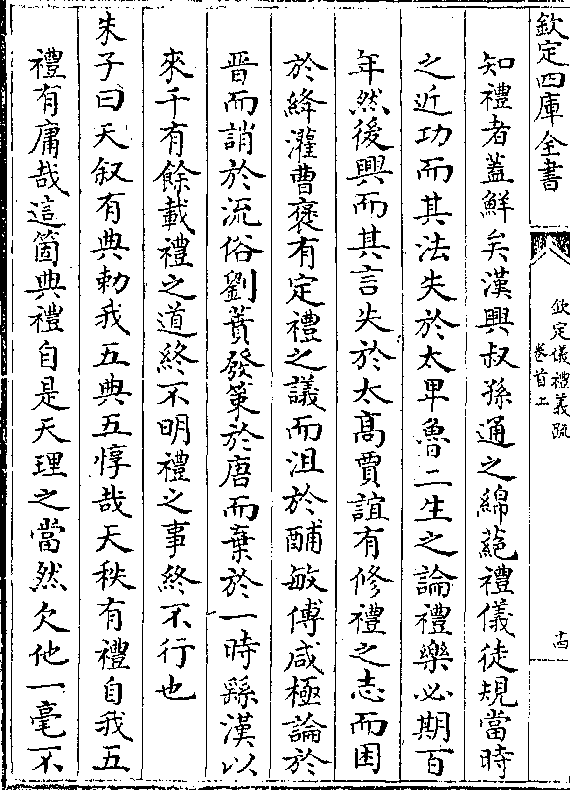 欽定四庫全書
欽定儀禮義疏
卷首上
十四
知禮者蓋鮮矣漢興叔孫通之綿蕝禮儀徒規當時
之近功而其法失於太卑魯二生之論禮樂必期百
年然後興而其言失於太髙賈誼有修禮之志而困
於絳灌曹褒有定禮之議而沮於酺敏傅咸極論於
晉而誚於流俗劉蕡發策於唐而棄於一時繇漢以
來千有餘載禮之道終不明禮之事終不行也
朱子曰天叙有典勅我五典五惇哉天秩有禮自我五
禮有庸哉這箇典禮自是天理之當然欠他一毫不